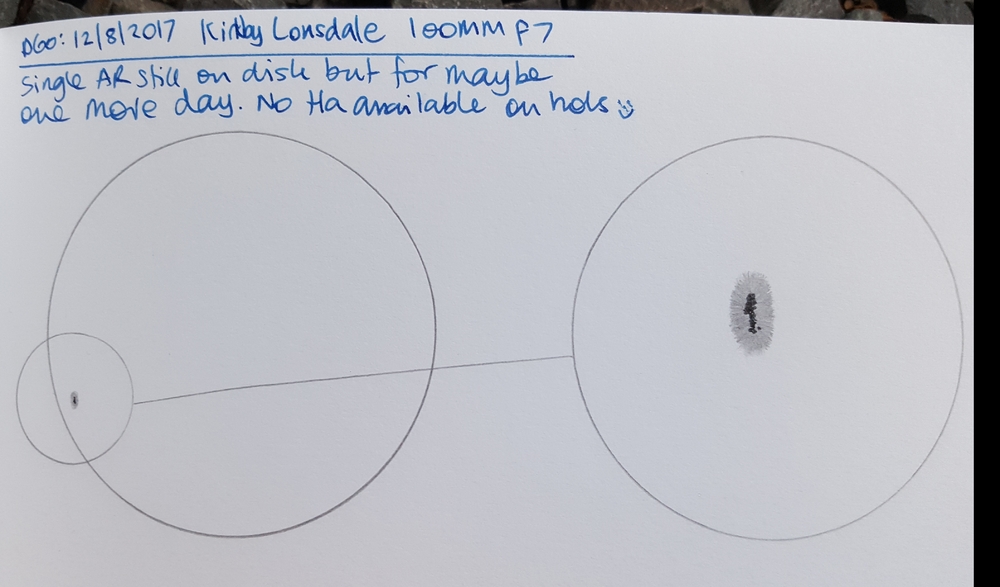 DGO: 12/8/2017 Kirkby Lonsdale 100mm f7
Single AR still on disk but for maybe
one more day. No Ha available on hols